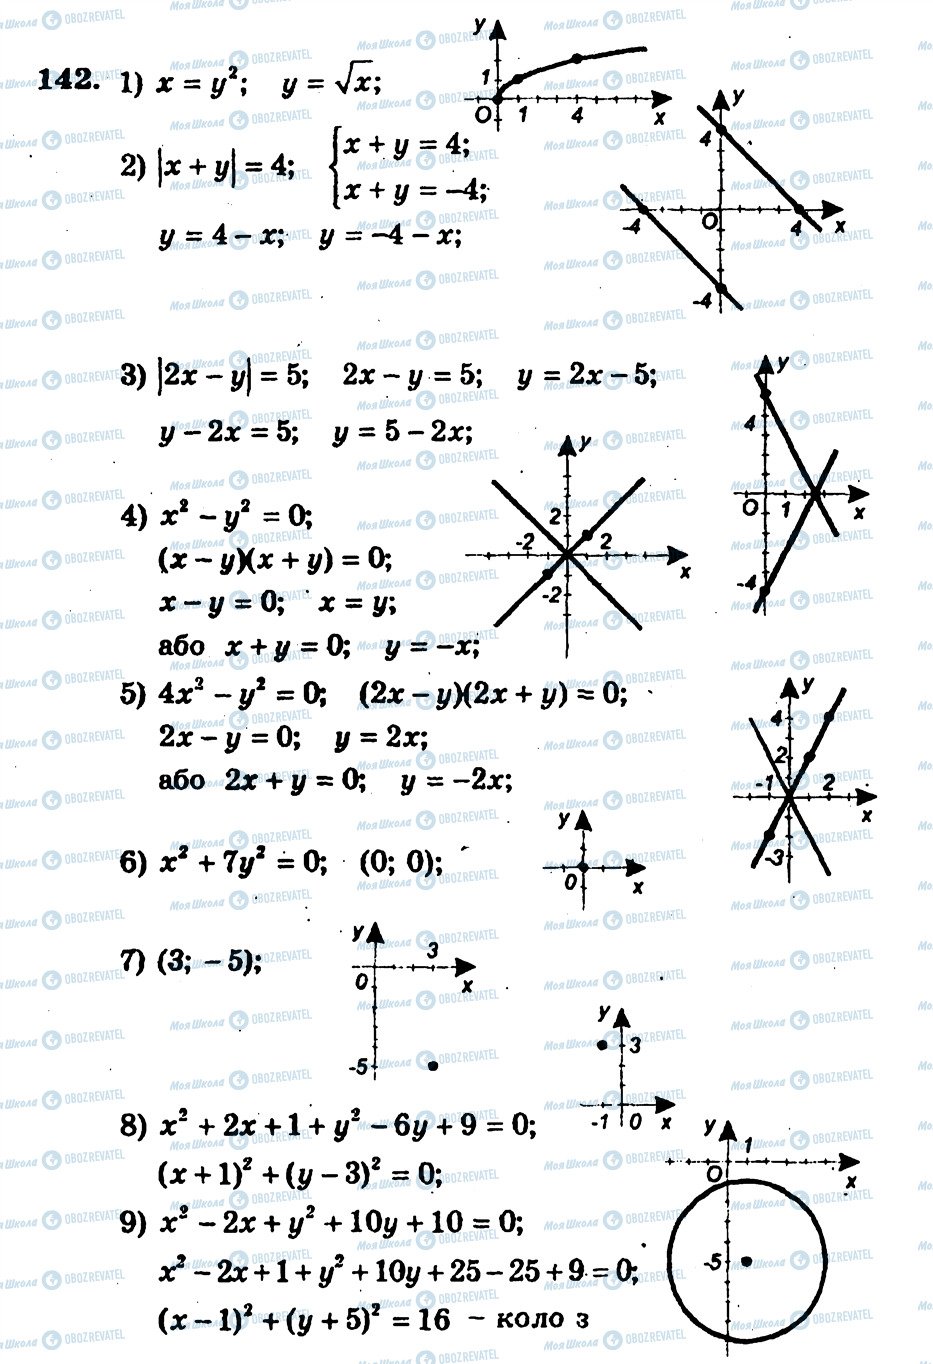 142. 1) x = y²; y = √x;
2) |x + y| = 4; { x + y = 4;
x + y = –4;
y = 4 – x; y = –4 – x;
3) |2x – y| = 5; 2x – y = 5; y = 2x – 5;
y – 2x = 5; y = 5 – 2x;
4) x² – y² = 0;
(x – y)(x + y) = 0;
x – y = 0; x = y;
або x + y = 0; y = –x;
5) 4x² – y² = 0; (2x – y)(2x + y) = 0;
2x – y = 0; y = 2x;
або 2x + y = 0; y = –2x;
6) x² + 7y² = 0; (0; 0);
7) (3; – 5);
8) x² + 2x + 1 + y² – 6y + 9 = 0;
(x + 1)² + (y – 3)² = 0;
9) x² – 2x + y² + 10y + 10 = 0;
x² – 2x + 1 + y² + 10y + 25 – 25 + 9 = 0;
(x – 1)² + (y + 5)² = 16 – коло з
y 1 O 1 4 x
y 4 -4 O 4 x -4
y 4 O 1 x -4
y 2 -2 2 x -2
y 4 2 -1 2 x -3
y O x
y 3 O x -5
y 3 -1 O x
y 1 O x -5
МояШкола OBOZREVATEL